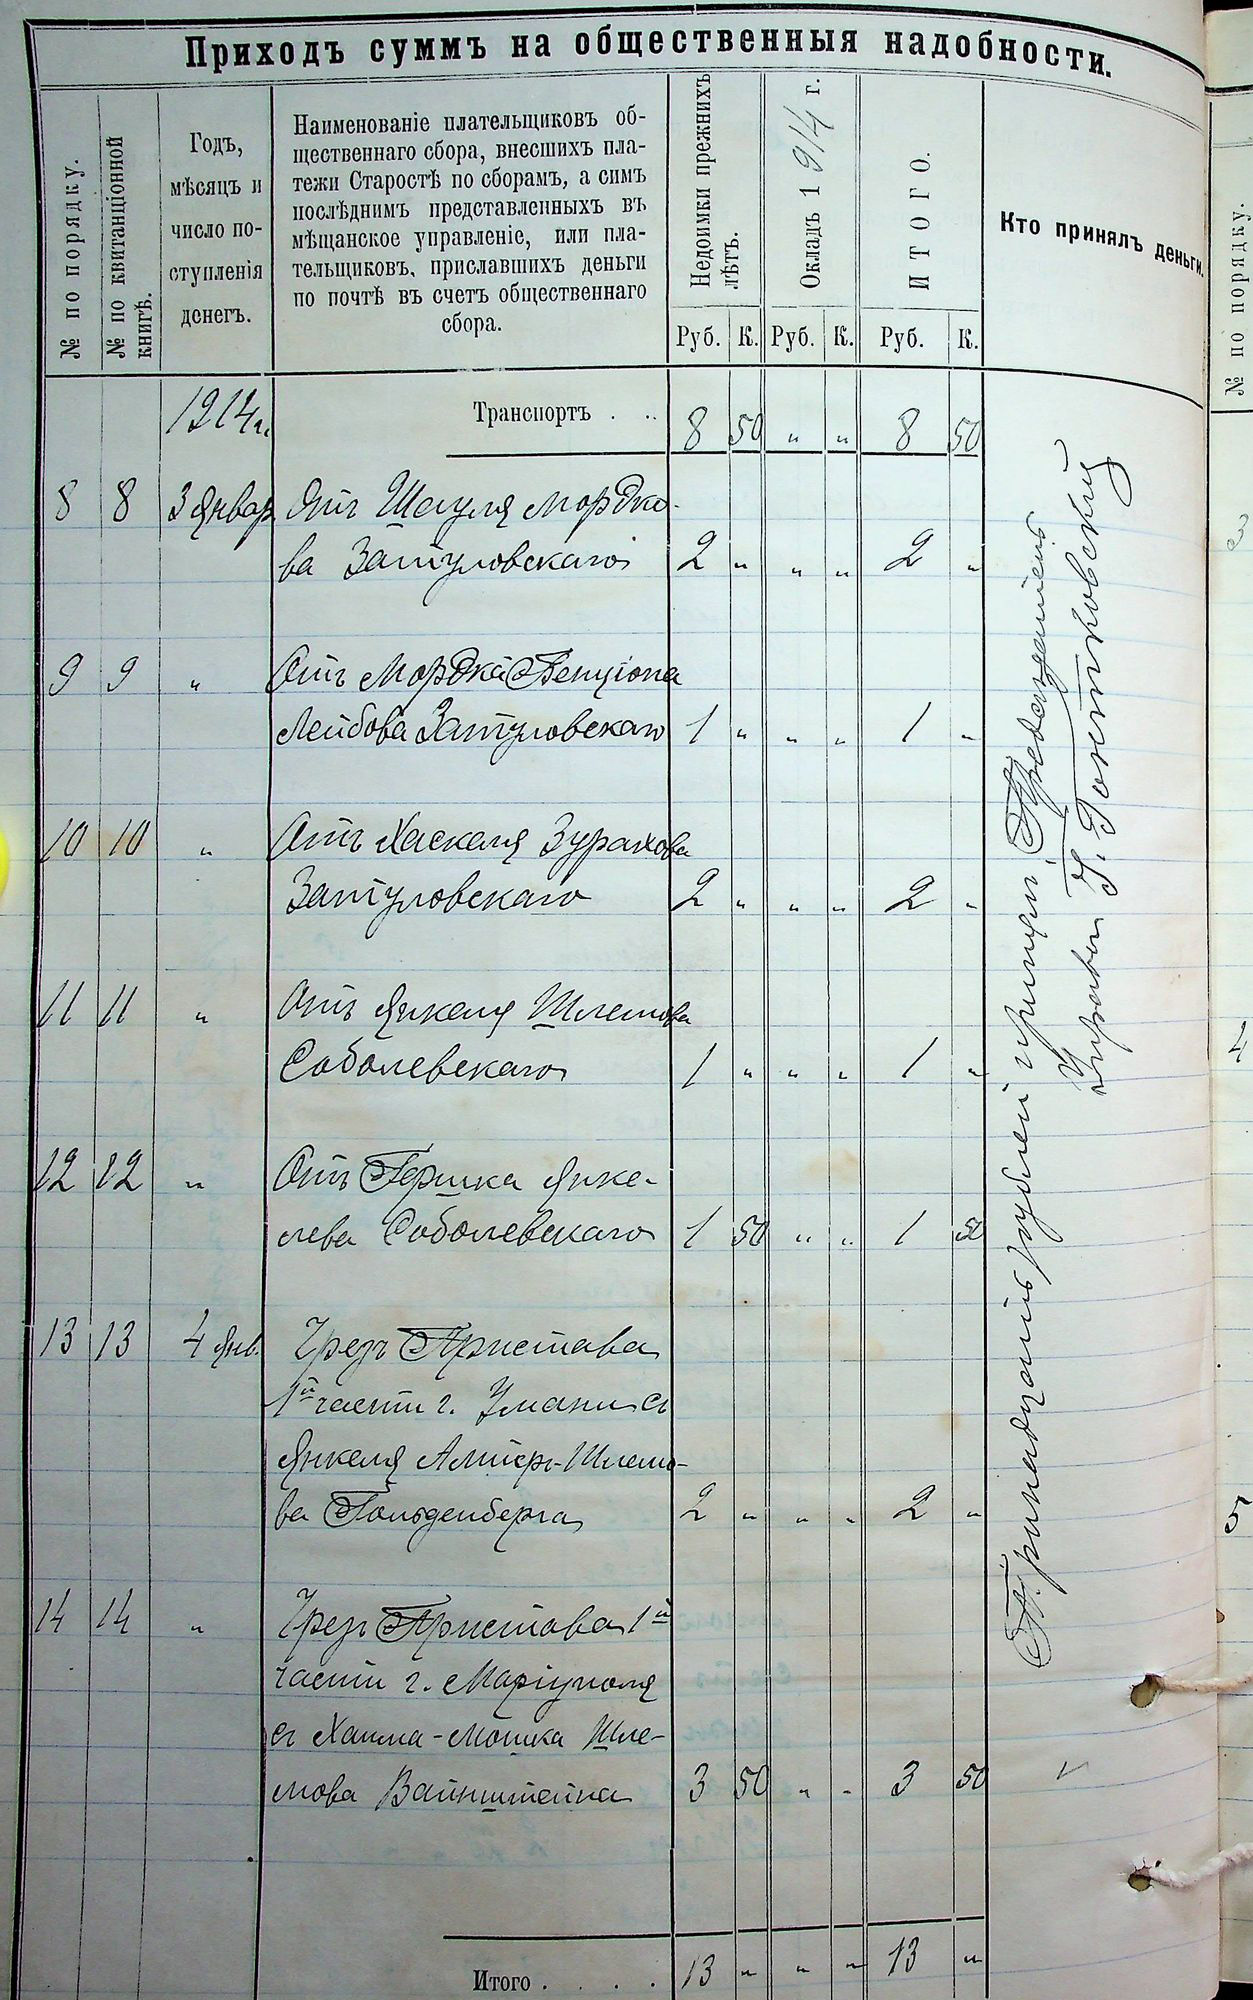 Приходъ суммъ на общественныя надобности.
№ по порядку.
№ по квитанціонной
книгѣ.
Годъ,
мѣсяцъ и
число по-
ступленія
денегъ.
Наименованіе плательщиковъ об-
щественнаго сбора, внесшихъ пла-
тежи Старостѣ по сборамъ, а симъ
послѣднимъ представленныхъ въ
мѣщанское управленіе, или пла-
тельщиковъ, приславшихъ деньги
по почтѣ въ счетъ общественнаго
сбора.
Недоимки прежнихъ
лѣтъ.
Окладъ 1914 г.
ИТОГО.
Кто принялъ деньги.
Руб. К. Руб. К. Руб. К.
1914 г. Транспортъ . .. 8 50 „ „ 8 50
8 8 3 Январ Отъ Шауля Мордко-
ва Затуловскаго 2 „ „ „ 2 „
9 9 „ Отъ Мордка Бенціона
Лейбова Затуловскаго 1 „ „ „ 1 „
10 10 „ Отъ Хаскеля Зурахова
Затуловскаго 2 „ „ „ 2 „
11 11 „ Отъ Янкеля Шлемова
Соболевскаго 1 „ „ „ 1 „
12 12 „ Отъ Гершка Янке-
лева Соболевскаго 1 50 „ „ 1 50
13 13 4 Янв. Чрезъ Пристава
1й части г. Умани съ
Янкеля Алтеръ-Шлемо-
ва Гольденберга 2 „ „ „ 2 „
14 14 „ Чрезъ Пристава 1й
части г. Маріуполя
съ Хаима-Мошка Шле-
мова Вайнштейна 3 50 „ „ 3 50
Итого . . . . 13 „ „ „ 13 „
Тринадцать рублей принялъ Предсѣдатель
Управы
№ по порядку.
3
4
5